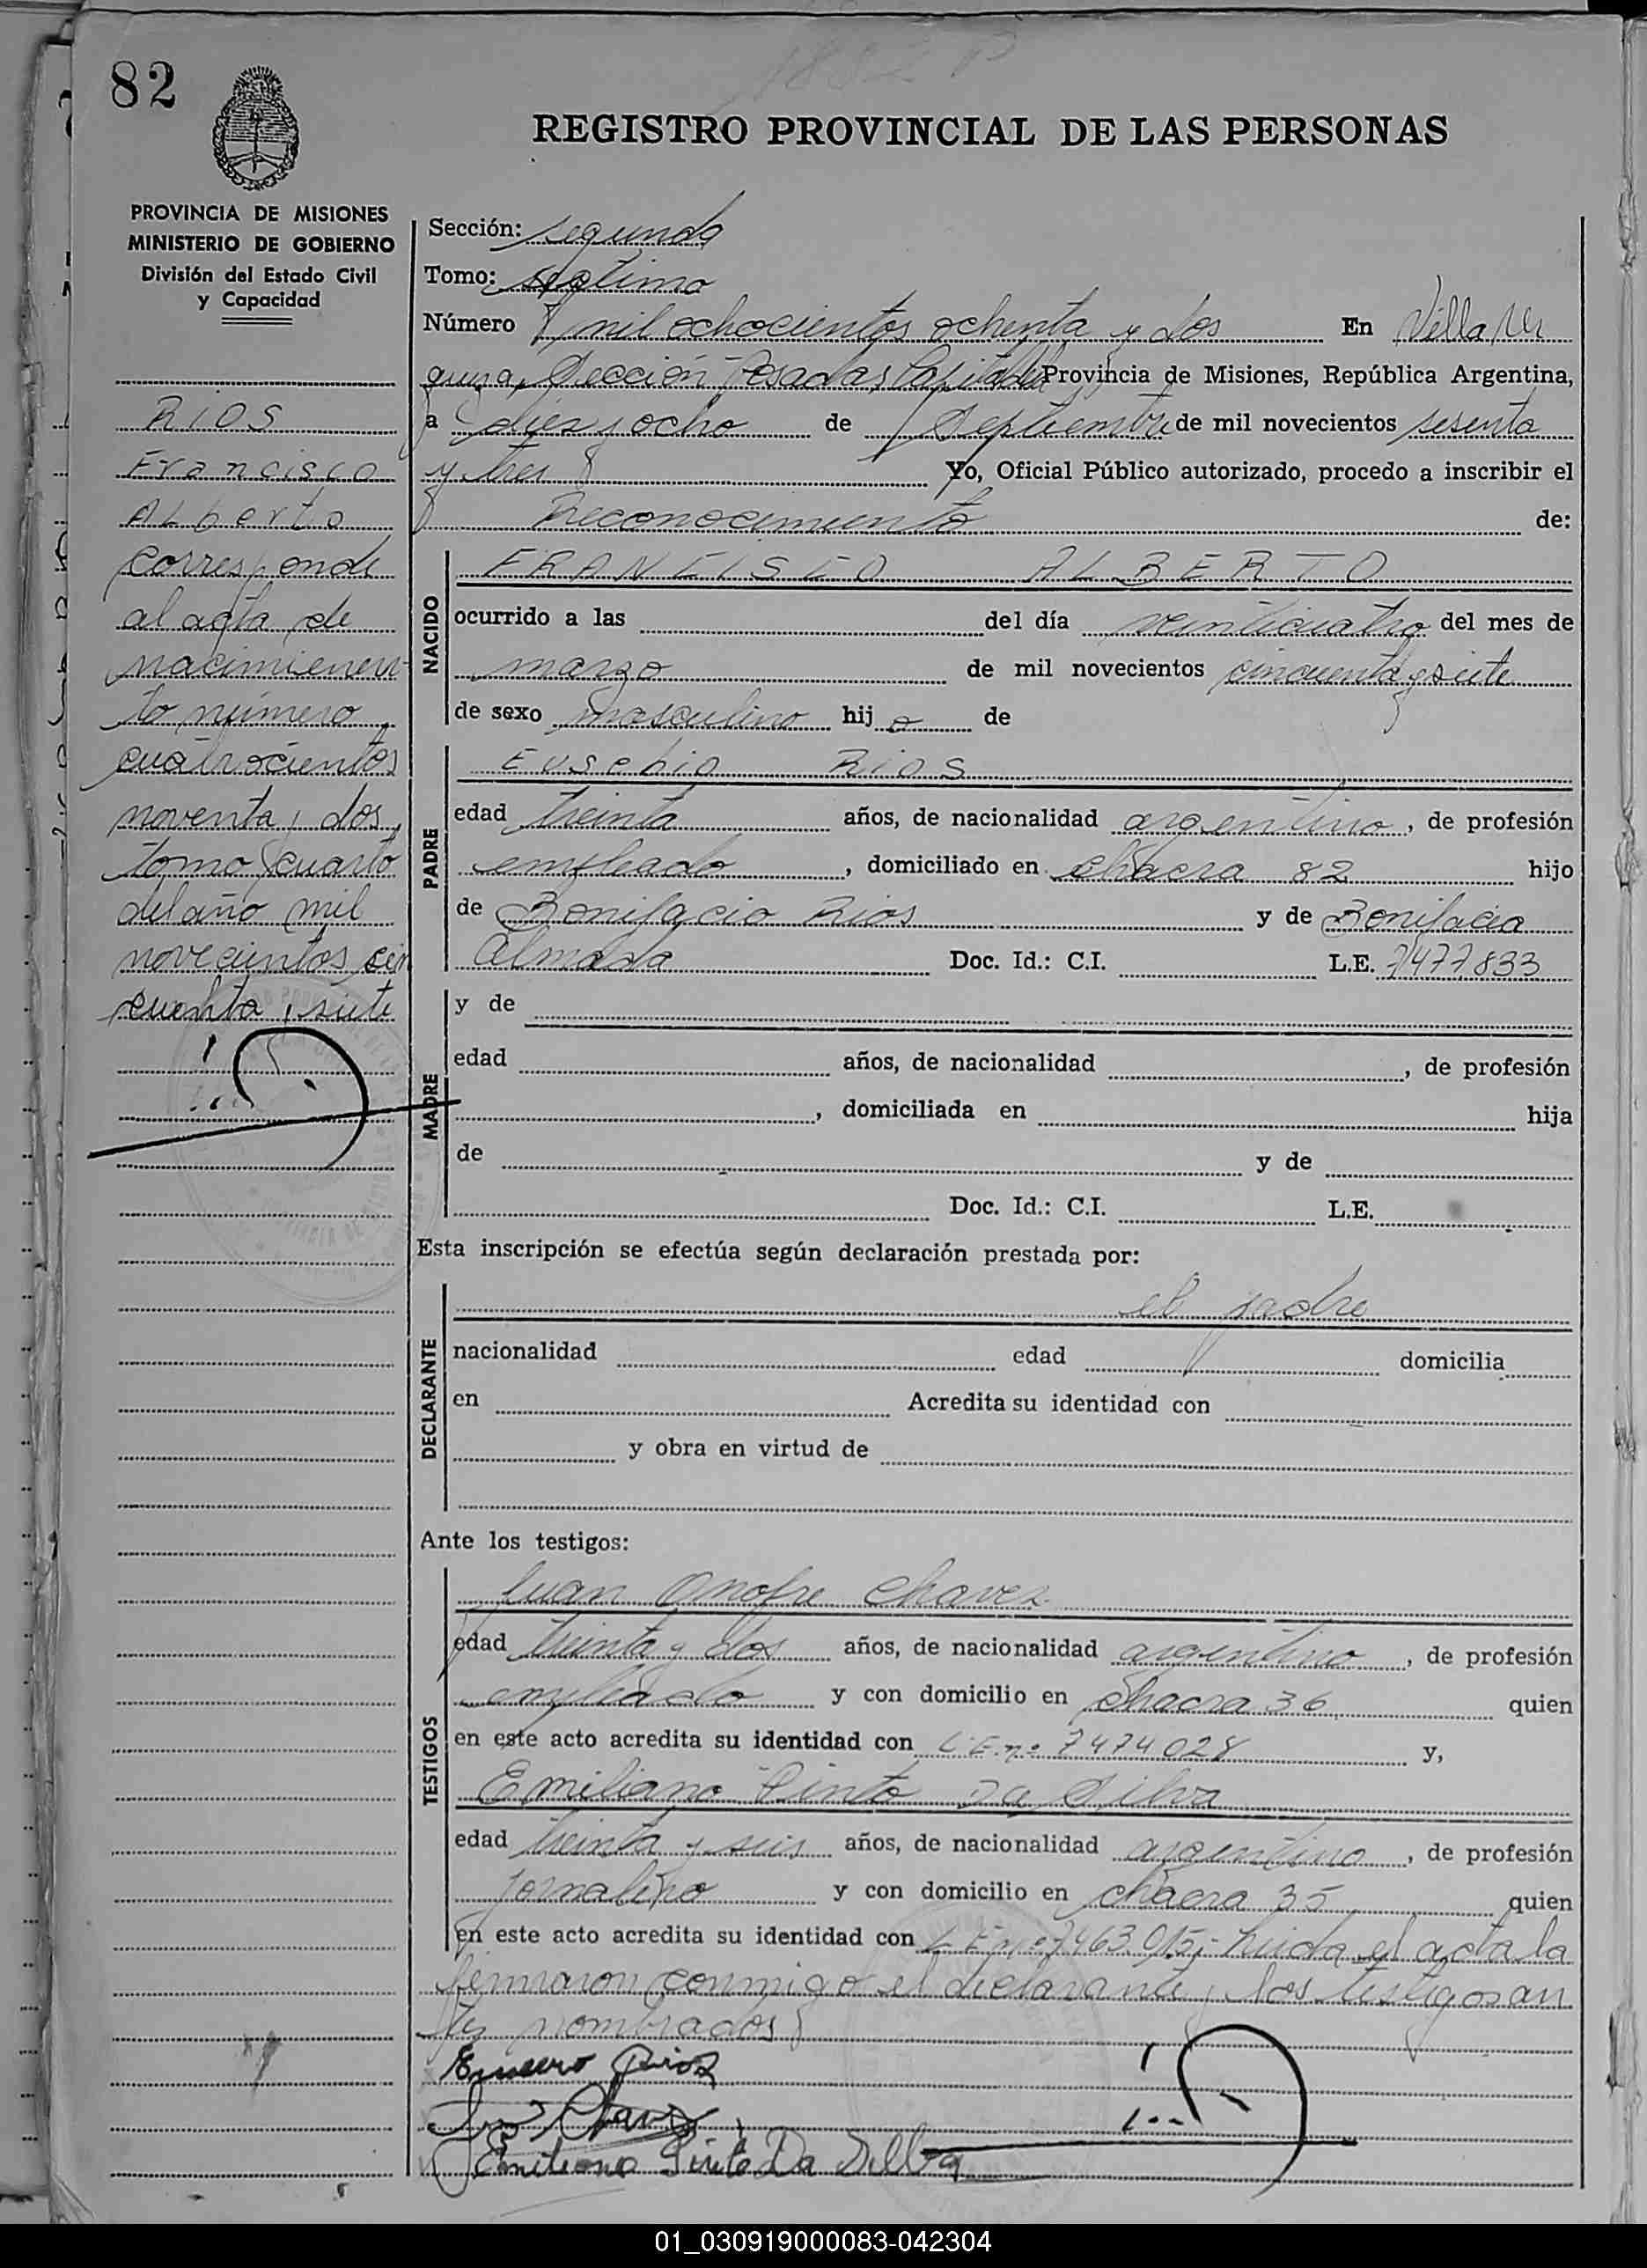 82
REGISTRO PROVINCIAL DE LAS PERSONAS
PROVINCIA DE MISIONES
MINISTERIO DE GOBIERNO
División del Estado Civil
y Capacidad
RIOS
Francisco
Alberto
corresponde
al acta de
nacimien
to número
cuatrocientos
noventa y dos
tomo cuarto
del año mil
novecientos cin
cuenta y siete
Sección: segunda
Tomo: septimo
Número mil ochocientos ochenta y dos En Villa Ur
quiza, Sección Posadas, Capital Provincia de Misiones, República Argentina,
a diez y ocho de Septiembre de mil novecientos sesenta
y tres Yo, Oficial Público autorizado, procedo a inscribir el
Reconocimiento de:
NACIDO
FRANCISCO ALBERTO
ocurrido a las del día veinticuatro del mes de
marzo de mil novecientos cincuenta y siete
de sexo masculino hijo de
PADRE
Eusebio Rios
edad treinta años, de nacionalidad argentino, de profesión
empleado, domiciliado en chacra 82 hijo
de Bonifacio Rios y de Bonifacia
Almada Doc. Id.: C.I. L.E. 7477833
MADRE
y de
edad años, de nacionalidad , de profesión
, domiciliada en hija
de y de
Doc. Id.: C.I. L.E.
Esta inscripción se efectúa según declaración prestada por:
DECLARANTE
el padre
nacionalidad edad domicilia
en Acredita su identidad con
y obra en virtud de
Ante los testigos:
TESTIGOS
Juan Onofre Chavez
edad treinta y dos años, de nacionalidad argentino, de profesión
empleado y con domicilio en chacra 36 quien
en este acto acredita su identidad con L.E. nº 7474028 y,
Emiliano Pinto Da Silva
edad treinta y seis años, de nacionalidad argentino, de profesión
jornalero y con domicilio en chacra 35 quien
en este acto acredita su identidad con L.E. nº 7463.015,- Leida el acta la
firmaron conmigo el declarante y los testigos an
tes nombrados
Emiliano Pinto Da Silba
01_030919000083-042304